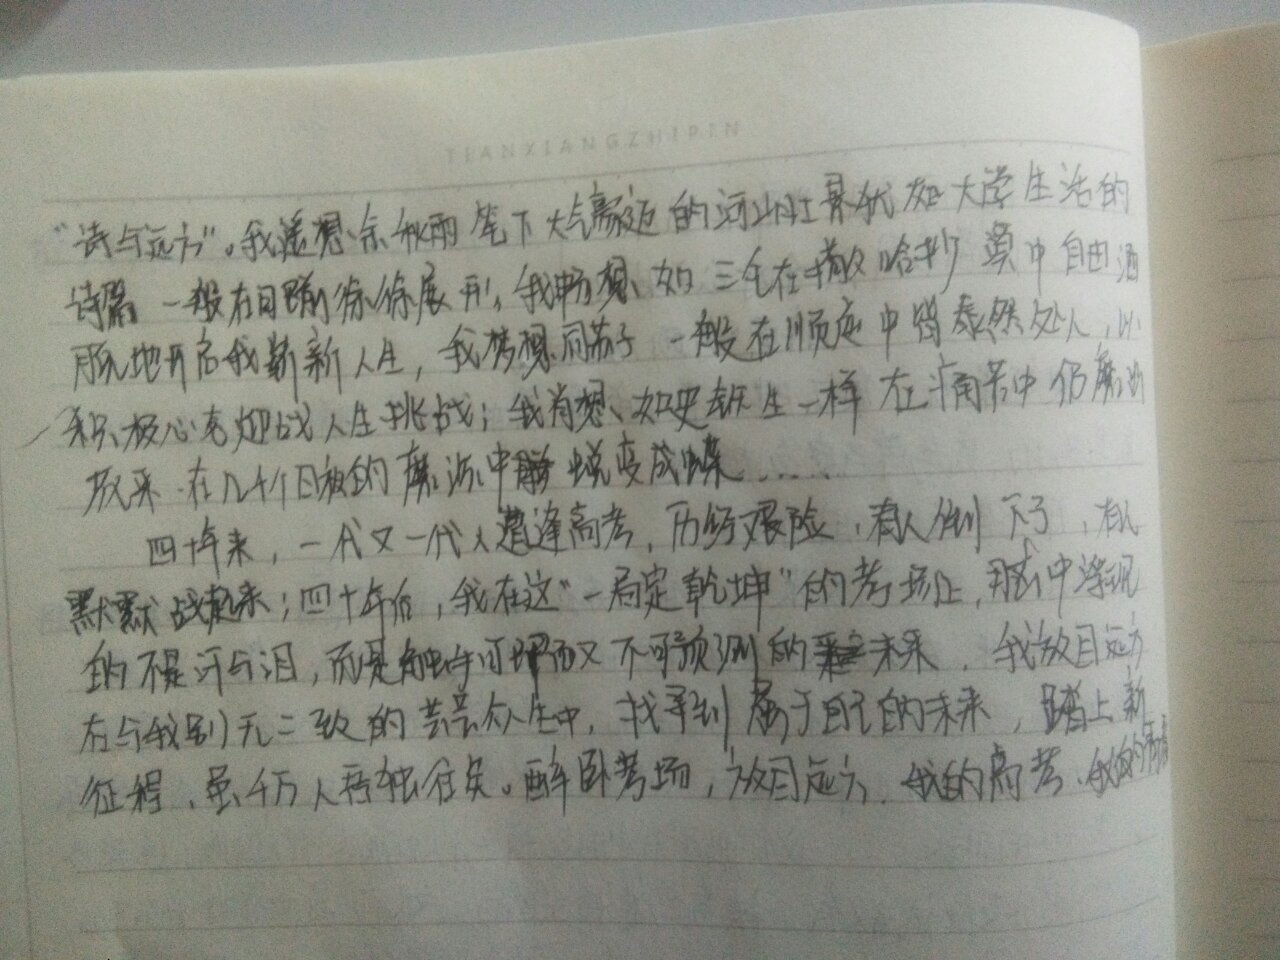 TIANXIANGZHIPIN
“诗与远方”。我遥想余秋雨笔下大气豪迈的河山壮景犹如大学生活的
诗篇一般在目眼前徐徐展开,我畅想如三毛在撒哈拉沙漠中自由洒
脱地开启我崭新人生,我梦想同苏子一般在顺逆中皆泰然处人,以
积极心态迎战人生挑战;我肖想如史铁生一样在痛苦中仍磨砺
在几千个日夜的磨砺中蜕变成蝶……
四十年来,一代又一代人遭逢高考,历经艰险,有人倒下了,有人
默默战起来;四十年后,我在这“一局定乾坤”的考场上,脑中浮现
的不是汗与泪,而是触手可及而又不可预测的未来,我放目远方
在与我别无二致的芸芸众生中,找寻到属于自己的未来,踏上新
征程,虽千万人吾独往矣。醉卧考场,放目远方,我的高考,我的